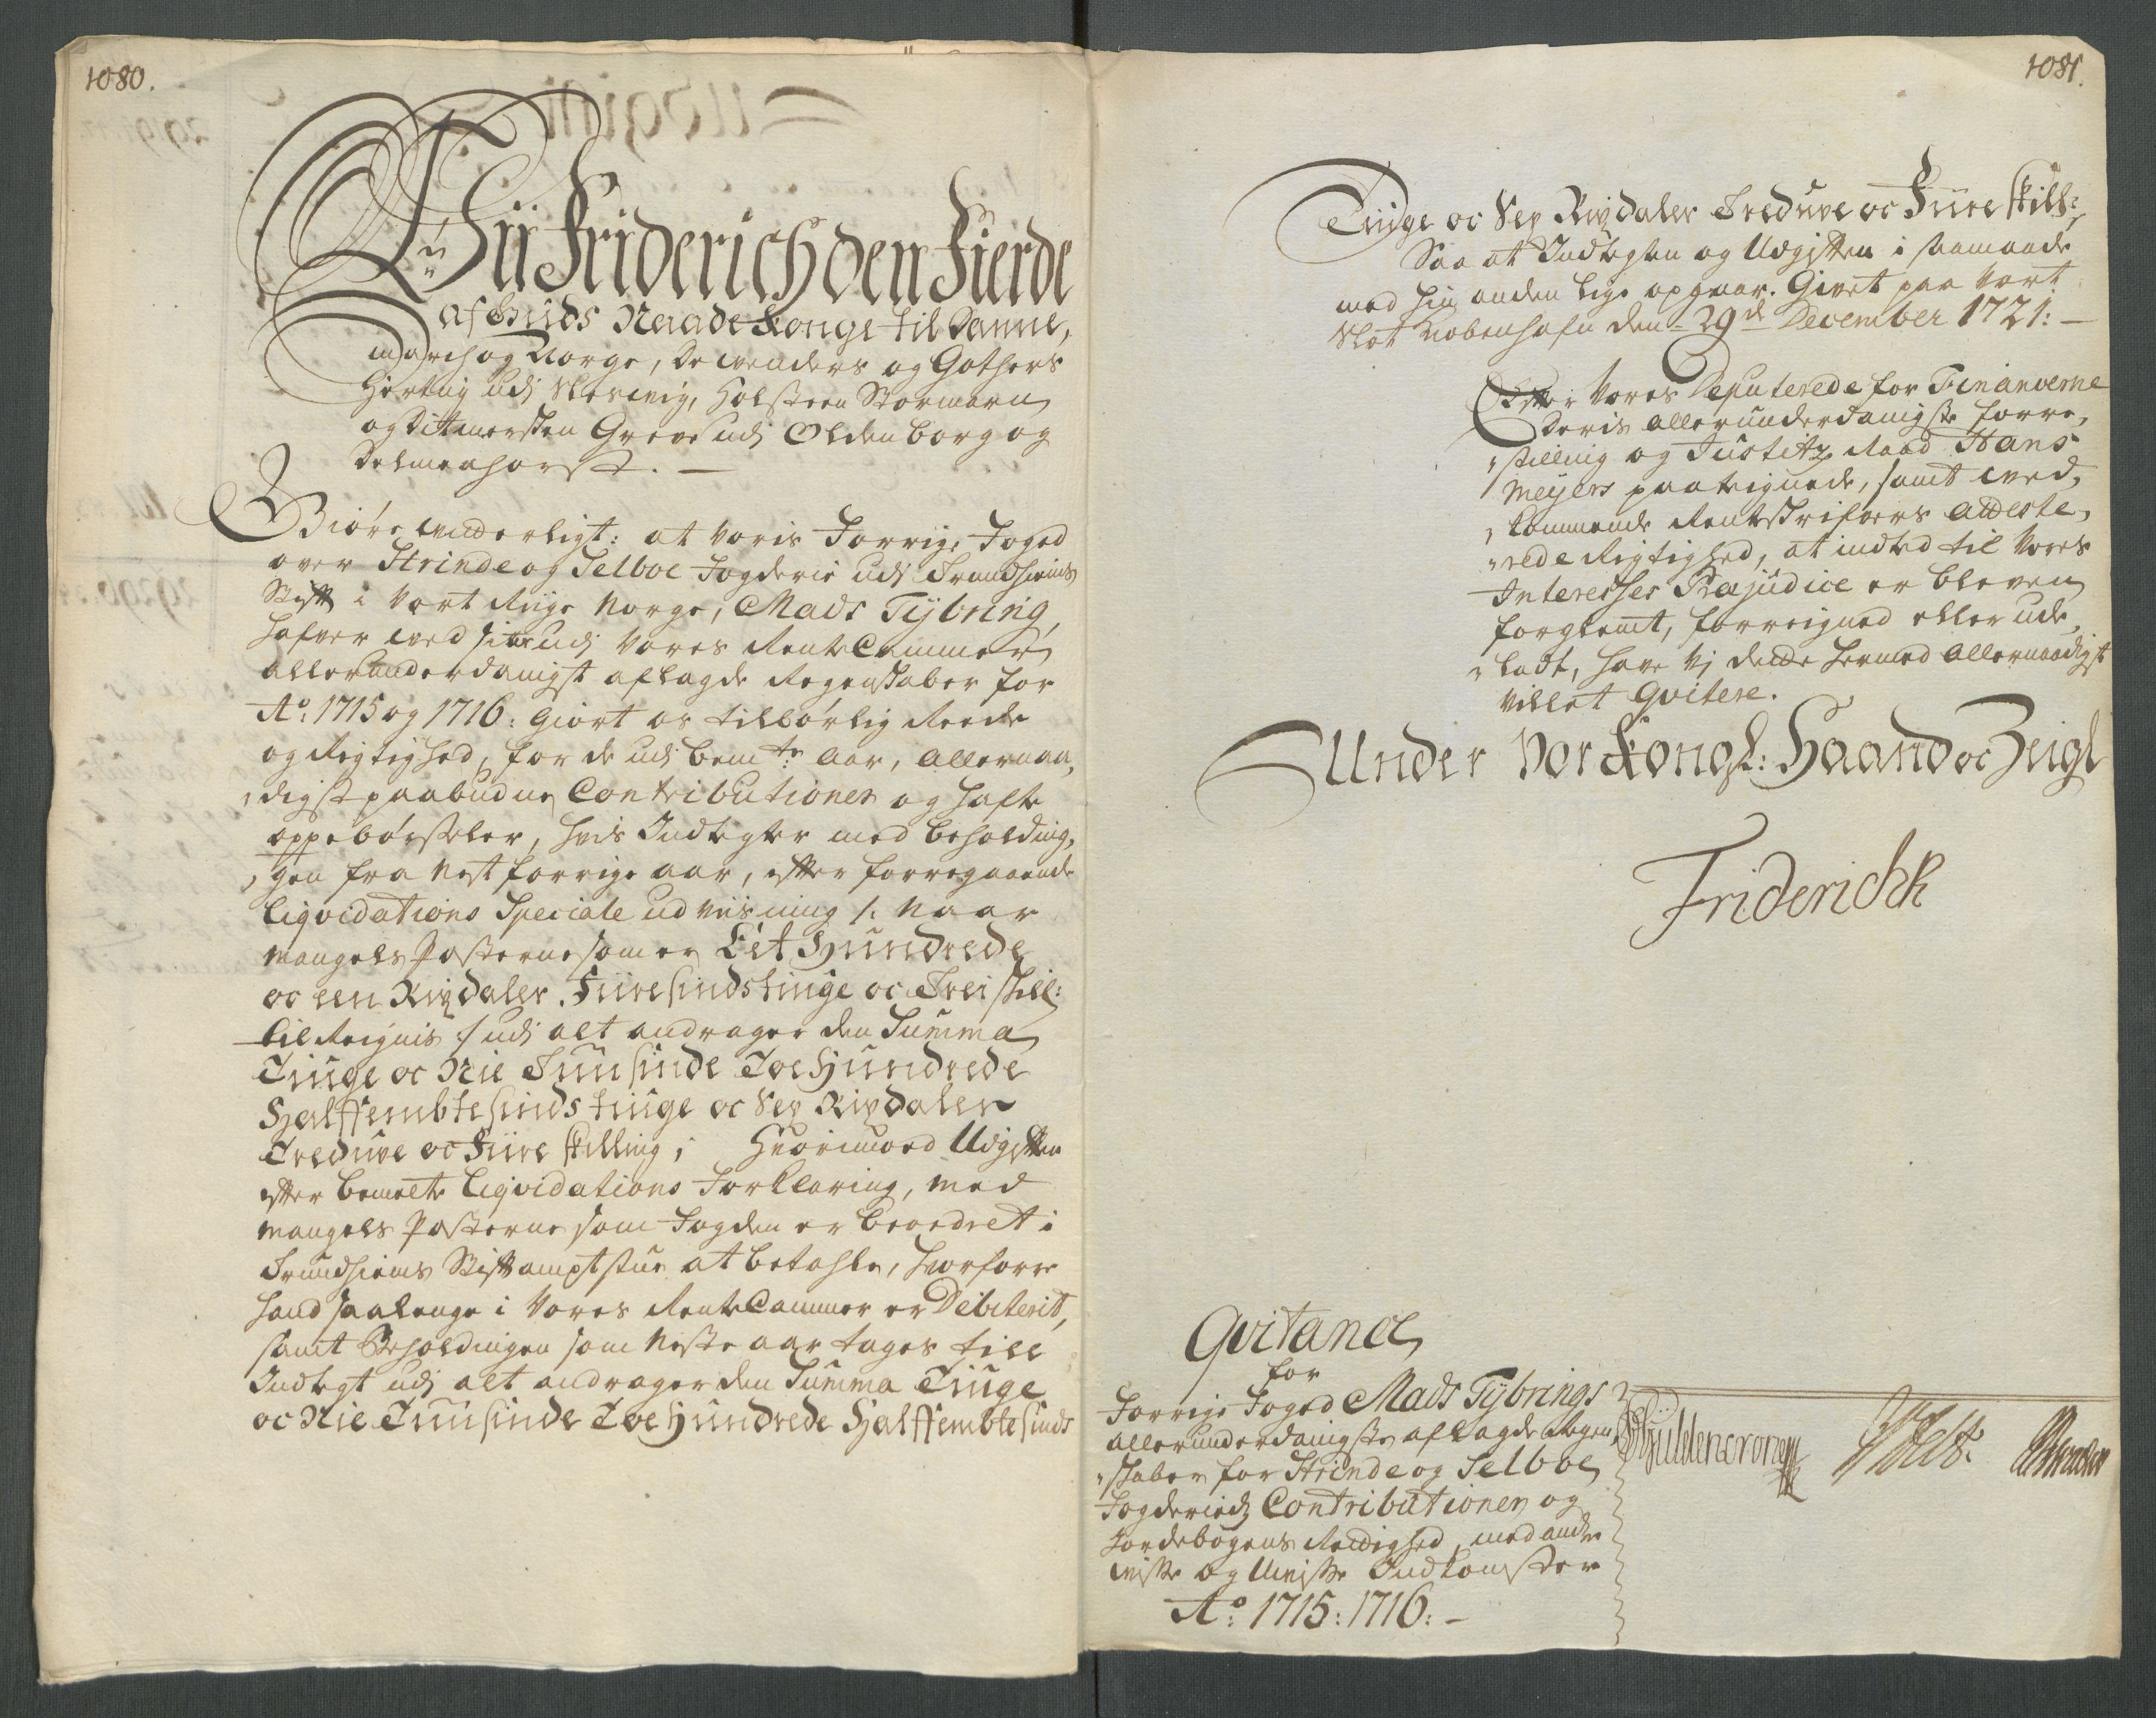 1080.
Wii Friderich den Fierde
af Guds Naade Konge til Danne,
march og Norge, de Wenders og Gothers
Hertug udj Slesvig, Holsteen Stormarn
og Ditmersken Greve udj Oldenborg og
Delmenhorst. —
Giøre witterligt: at Voris Forrige Foged
over Strinde og Selboe Fogderie udj Trundhiems
Stift i Vort Riige Norge, Mads Tÿbring,
hafver wed sine udj Vores Rente Cammer
allerunderdanigst aflagde Regenskaber for
Ao: 1715 og 1716: giort os tilbørlig Reede
og Rigtighed, for de udj bemte: Aar, Allernaa,
,digst paabudne Contributioner og hafte
oppebørseler, hvis Indtegter med beholdning,
,gen fra Nest forrige aar, efter forregaaende
Liqvidations Speciale udviisning /: Naar
Mangels Posterne som er Eét Hundrede
oc een Rixdaler. Fiiresindstiuge oc Trei skill:
til Reignis / udj alt andrager den Summa
Tiuge oc Nie Tuusinde Toe Hundrede
Halffembtesindstiuge oc Sex Rixdaler
Treduve oc Fiire skilling; Hvorimod Udgiften
efter bemelte Liqvidations Forklaring, med
Mangels Posterne som Fogden er beordret i
Trundhiems Stiftamptstue at betahle, hvorforre
hand saalenge i Vores Rente Cammer er Debiterit,
samt Beholdningen som Neste aar tages till
Indtegt udj alt andrager den Summa Tiuge
oc Nie Tuusinde Toe Hundrede Halffembtesinds
1081.
Tiuge oc Sex Rixdaler Treduve oc Fiire skill:
Saa at Indtegten og Udgiften i saamaade
med hin anden lige opgaar. Givet paa Vort
Slot Kiøbenhafn den 29de December 1721: —
Efter Vores Deputerede for Financerne
Deris allerunderdanigste forre,
,stilling og Justitz Raad Hans
Meÿers paateignede, samt wed,
,kommende Rentskrifvers Atteste,
,rede Rigtighed, at indted til Vores
Interesses Præjudice er bleven
forglemt, forreigned eller ude,
,ladt, have Vj dette hermed Allernaadigst
Villet Qvitere.
Under Vor Kongl: Haand oc Zeigl
Friderich R
Qvitance
for
Forrige Foged Mads Tÿbrings
allerunderdanigste aflagde Regen,
,skaber for Strinde og Selboe
Fogderiers Contributioner og
Jordebogens Rettighed, med andre
wiisse og Uwiisse Indkomster
Ao: 1715: 1716: —